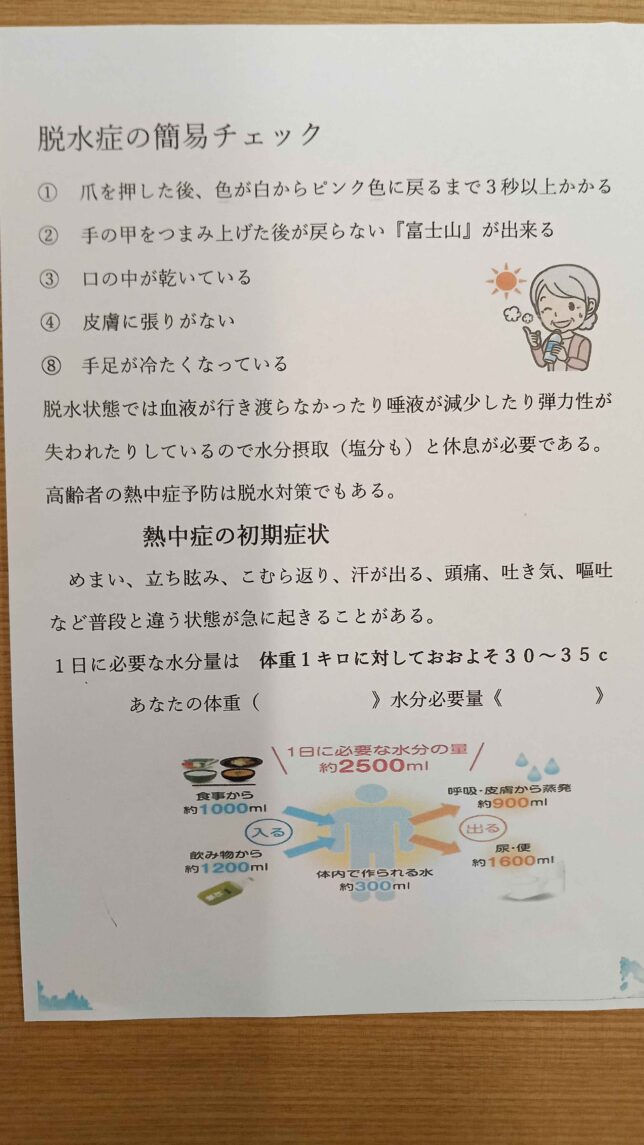 脱水症の簡易チェック
① 爪を押した後、色が白からピンク色に戻るまで３秒以上かかる
② 手の甲をつまみ上げた後が戻らない『富士山』が出来る
③ 口の中が乾いている
④ 皮膚に張りがない
⑧ 手足が冷たくなっている
脱水状態では血液が行き渡らなかったり唾液が減少したり弾力性が
失われたりしているので水分摂取（塩分も）と休息が必要である。
高齢者の熱中症予防は脱水対策でもある。
熱中症の初期症状
めまい、立ち眩み、こむら返り、汗が出る、頭痛、吐き気、嘔吐
など普段と違う状態が急に起きることがある。
１日に必要な水分量は 体重１キロに対しておおよそ３０～３５ｃ
あなたの体重（ 》水分必要量《 》
1日に必要な水分の量
約2500ml
食事から
約1000ml
入る
飲み物から
約1200ml
体内で作られる水
約300ml
呼吸・皮膚から蒸発
約900ml
出る
尿・便
約1600ml